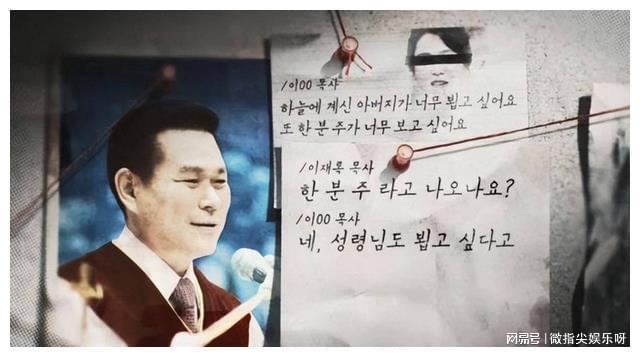 /이OO 목사
하늘에 계신 아버지가 너무 뵙고 싶어요
또 한 분 주가 너무 보고 싶어요
/이재록 목사
한 분 주 라고 나오나요?
/이OO 목사
네, 성령님도 뵙고 싶다고
网易号 | 微指尖娱乐呀